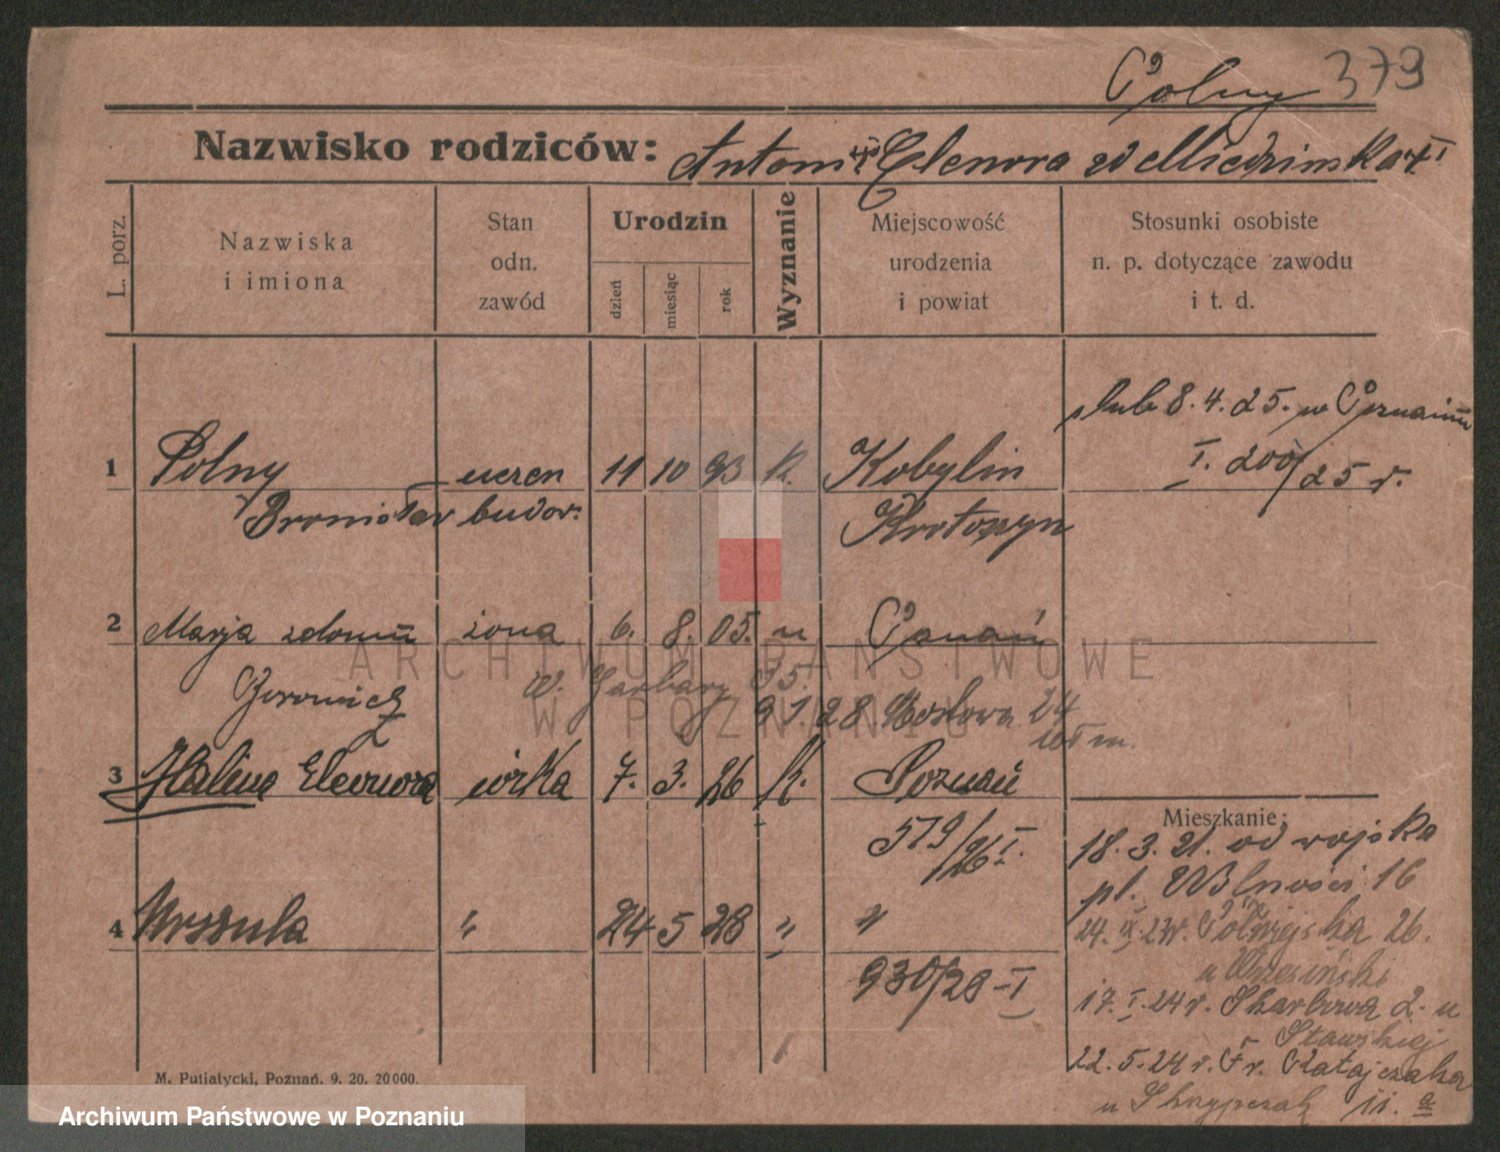 Polny 379
Nazwisko rodziców: Antoni Elenora
L. porz.
Nazwiska
i imiona
Stan
odn.
zawód
Urodzin
dzień
miesiąc
rok
Wyznanie
Miejscowość
urodzenia
i powiat
Stosunki osobiste
n. p. dotyczące zawodu
i t. d.
ślub 8.4.25. w Poznaniu
I. 200/25 r.
1 Polny uczen 11 10 93 K. Kobylin
Bronisław budow. Krotoszyn
2 Marja z domu żona 6. 8. 05. Poznań
W. Garbary 35.
9 1. 28. Mostowa 24
3 Halina Eleonora córka 7. 3. 26 K. Poznań
519/26 I.
Mieszkanie:
18. 3. 21. od wojska
pl. Wolności 16
4 Urszula " 24 5 28 " "
24. IX. 23r. Półwiejska 26.
930/28 - I
17. I. 24 r. Skarbowa 2. u
Stawskiej
22. 5. 24 r. Fr. Ratajczaka
u 11. a
M. Putiatycki, Poznań. 9. 20. 20000.
ARCHIWUM PAŃSTWOWE
W POZNANIU
Archiwum Państwowe w Poznaniu